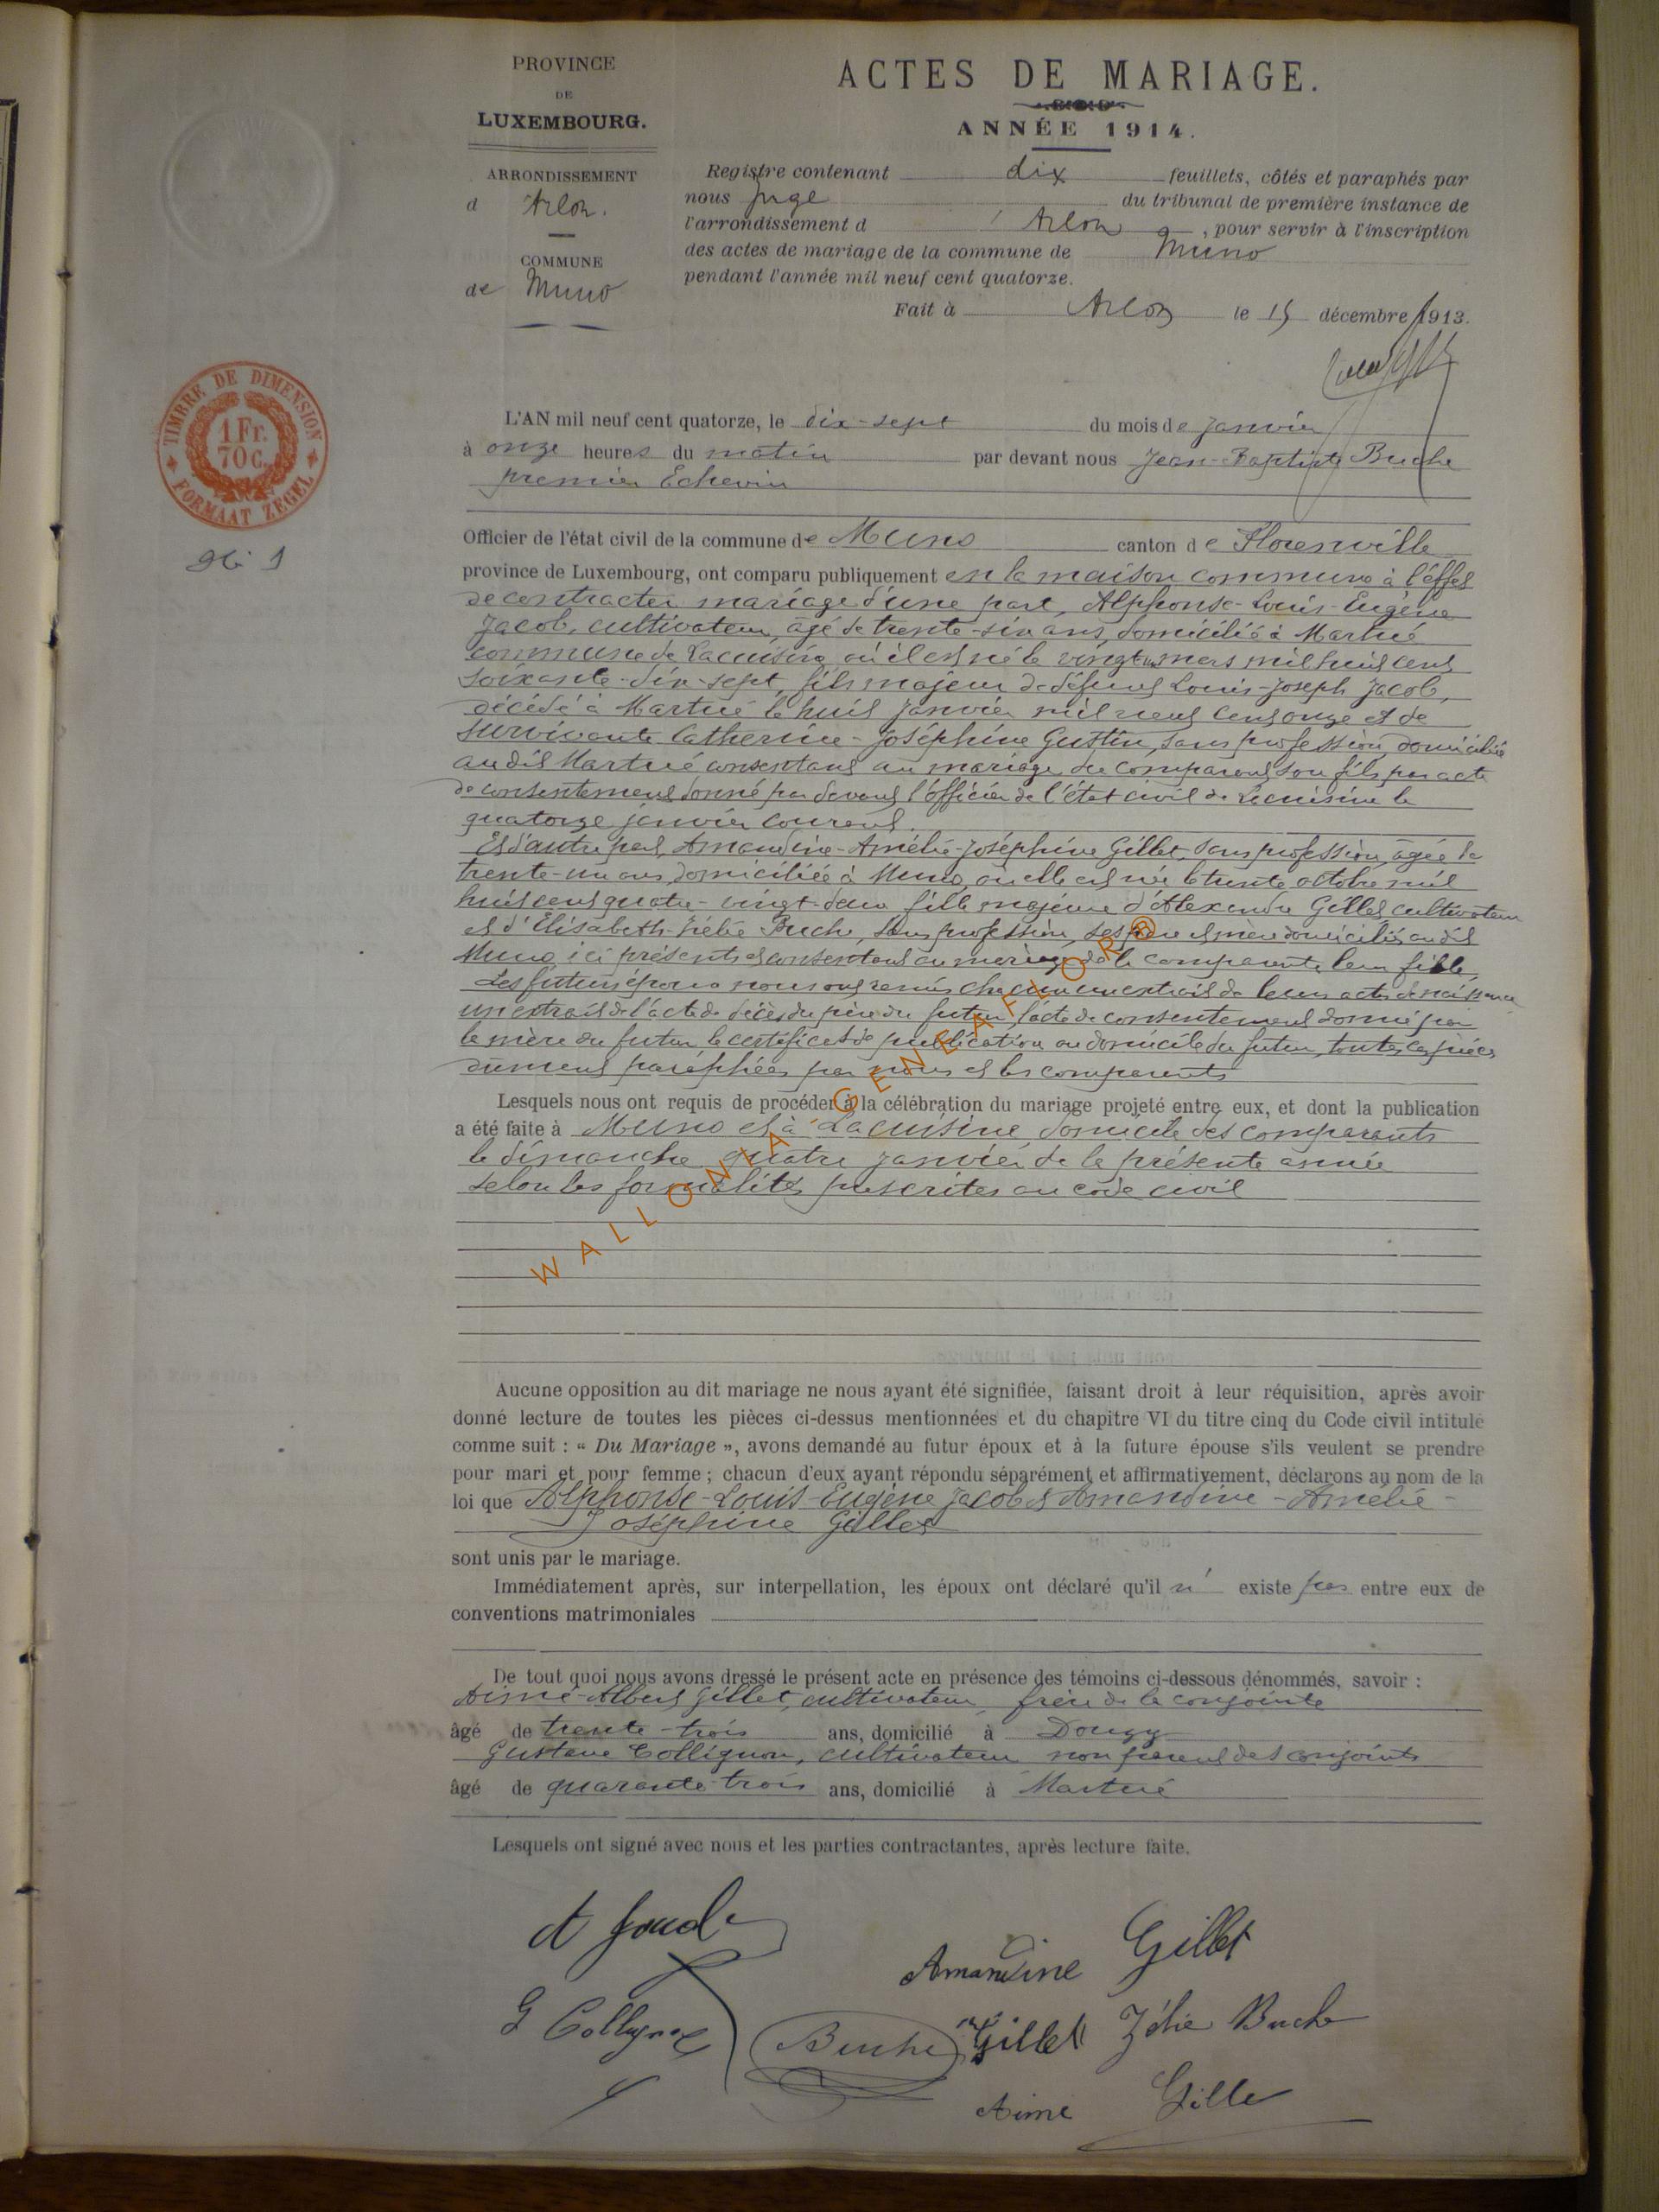 PROVINCE
DE
LUXEMBOURG.
ARRONDISSEMENT
d Arlon.
COMMUNE
de Muno
ACTES DE MARIAGE.
ANNÉE 1914.
Registre contenant dix feuillets, côtés et paraphés par
nous Juge du tribunal de première instance de
l'arrondissement d'Arlon, pour servir à l'inscription
des actes de mariage de la commune de Muno
pendant l'année mil neuf cent quatorze.
Fait à Arlon le 15 décembre 1913.
TIMBRE DE DIMENSION
1 Fr.
70 C.
FORMAAT ZEGEL
No 1
L'AN mil neuf cent quatorze, le dix-sept du mois de janvier
à onze heures du matin par devant nous Jean-Baptiste Buche
premier Echevin
Officier de l'état civil de la commune de Muno canton de Florenville
province de Luxembourg, ont comparu publiquement en la maison commune à l'effet
de contracter mariage d'une part, Alphonse-Louis-Eugène
Jacob, cultivateur, âgé de trente-six ans, domicilié à Martué
commune de Lacuisine où il est né le vingt un mars mil huit cent
soixante-dix-sept, fils majeur de défunt Louis-Joseph Jacob,
décédé à Martué le huit janvier mil neuf cent onze et de
survivante Catherine-Joséphine Gustin, sans profession, domiciliée
au dit Martué, consentant au mariage du comparant son fils par acte
de consentement donné par devant l'officier de l'état civil de Lacuisine le
quatorze janvier courant.
Et d'autre part, Amandine-Amélie-Joséphine Gillet, sans profession, âgée de
trente-un ans, domiciliée à Muno, où elle est née le trente octobre mil
huit cent quatre-vingt-deux fille majeure d'Alexandre Gillet, cultivateur
et d'Elisabeth-Zélie Buche, sans profession, ses père et mère domiciliés au dit
Muno, ici présents et consentant au mariage de la comparante leur fille,
Les futurs époux nous ont remis chacun un extrait de leur acte de naissance
un extrait de l'acte de décès du père du futur, l'acte de consentement donné par
la mère du futur le certificat de publication au domicile du futur, toutes ces pièces
dûment paraphées par nous et les comparants
Lesquels nous ont requis de procéder à la célébration du mariage projeté entre eux, et dont la publication
a été faite à Muno et à Lacuisine, domicile des comparants
le dimanche quatre janvier de la présente année
selon les formalités prescrites au code civil
WALLONIA GENEAFLOR®
Aucune opposition au dit mariage ne nous ayant été signifiée, faisant droit à leur réquisition, après avoir
donné lecture de toutes les pièces ci-dessus mentionnées et du chapitre VI du titre cinq du Code civil intitulé
comme suit : « Du Mariage », avons demandé au futur époux et à la future épouse s'ils veulent se prendre
pour mari et pour femme ; chacun d'eux ayant répondu séparément et affirmativement, déclarons au nom de la
loi que Alphonse-Louis-Eugène Jacob et Amandine-Amélie-
Joséphine Gillet
sont unis par le mariage.
Immédiatement après, sur interpellation, les époux ont déclaré qu'il n' existe pas entre eux de
conventions matrimoniales
De tout quoi nous avons dressé le présent acte en présence des témoins ci-dessous dénommés, savoir :
Aimé-Albert Gillet, cultivateur, frère de la conjointe
âgé de trente-trois ans, domicilié à Dougy
Gustave Collignon, cultivateur non parent des conjoints
âgé de quarante trois ans, domicilié à Martué
Lesquels ont signé avec nous et les parties contractantes, après lecture faite.
A Jacob
Amandine Gillet
G Collignon
Buche
Gillet
Zélie Buche
Aimé Gillet